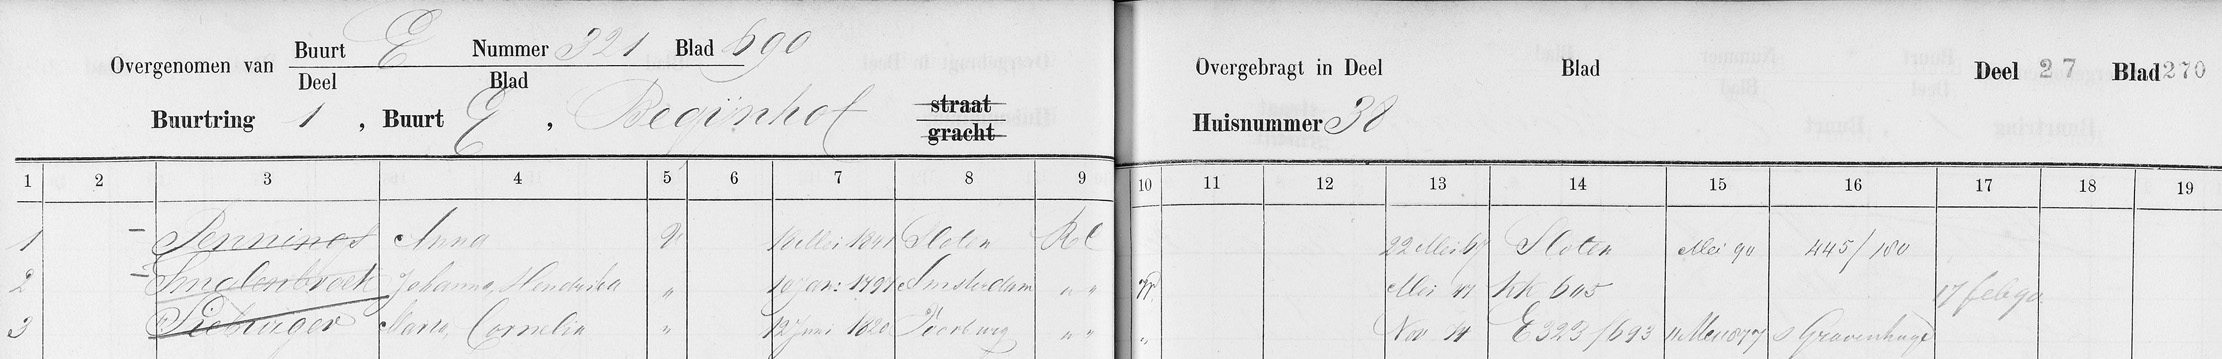 Overgenomen van Buurt E Nummer 321 Blad 690
Deel Blad
Buurtring 1, Buurt E, Begijnhof straat gracht
Overgebragt in Deel Blad Deel 27 Blad 270
Huisnummer 38
1 2 3 4 5 6 7 8 9 10 11 12 13 14 15 16 17 18 19
1 Pennings Anna V 18 Mei 1841 Sloten RC 22 Mei 67 Sloten Mei 90 445/180
2 Smalenbroek Johanna Hendrika " 10 Jan: 1791 Amsterdam " " W. Mei 47 KK 605 17 feb 90
3 Maria, Cornelia " 12 Juni 1820 Voorburg " " " Nov 14 E 323/693 11 Mei 1877 s Gravenhage